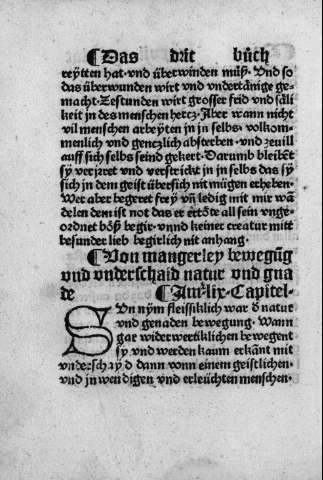 ¶Das drit bůch
reytten hat· vnd überwinden můß· Vnd so
das überwunden wirt vnd vndertånige ge-
macht· Zestunden wirt grosser frid vnd såli
keit in des menschen hertz· Aber wann nicht
vil menschen arbeyten in jn selbs· volkom-
menlich vnd gentzlich absterben· vnd ze uill
auff sich selbs seind gekert· Darumb bleibēt
sy verjrret vnd verstrickt in jn selbs das sy
sich in dem geist übersich nit mügen erheben·
Wer aber begeret frey vn̄ ledig mit mir wā
delen dem ist not das er ertöte all sein vnge-
ordnet böß begir· vnnd keiner creatur mitt
besunder lieb begirlich nit anhang·
¶Von mangerley bewegūg
vnd vnderschaid natur vnd gna
de ¶Am·lix·Capitel·
SVn nym fleissiklich war d natur
vnd genaden bewegung· Wann
gar widerwertiklichen bewegent
sy vnd werden kaum erkānt mit
vnderschayd dann vonn einem geistlichen·
vnd jnwendigen vnd erleüchten menschen·